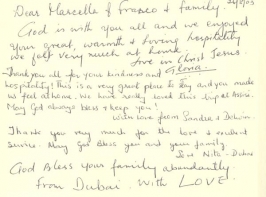 24/8/03
Dear Marcella & Franco & family.
God is with you all and we enjoyed
your great, warmth & loving hospitality
we felt very much at home.
love in Christ Jesus.
Gloria.
Thank you all for your kindness and
hospitality! This is a very great place to stay and you made
us feel at home. We have really loved this trip at Assisi.
May God always bless & keep you!
with love from Sandra &
Thank you very much for the love & excellent
Service. May God Bless you and your family.
Love Nita - Dubai
God Bless your family abundantly
from Dubai. With LOVE!